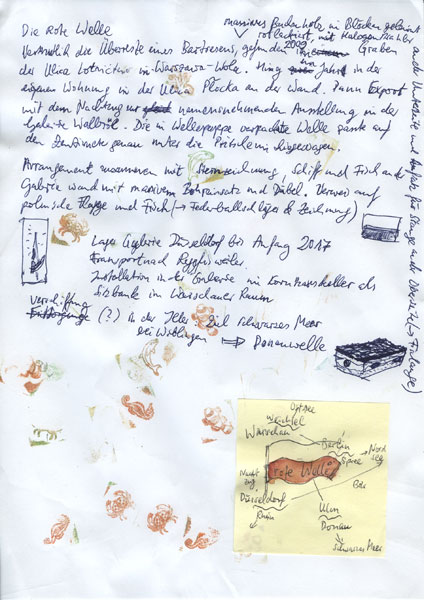 Die rote Welle
massives Buchenholz, in Blöcken geleimt
rotlackiert, mit Halogenstrahler
Vermutlich die Überreste eines Bartresens, gefunden 2009 im Graben
der Ulica Lotnictwo in Warszawa-Wola. Hing ein Jahr in der
eigenen Wohnung in der Ulica Płocka an der Wand. Dann Export
mit dem Nachtzug zur namensnehmenden Ausstellung in der
Galerie Wallstr. Die in Wellenpappe verpackte Welle passte auf
den Zentimeter genau unter die Pritsche im Liegewagen.
Arrangement zusammen mit Sternzeichnung, Schiff und Fisch an der
Galerie wand mit massivem Bohreinsatz und Dübel. Verweis auf
polnische Flagge und Fisch (→ Federballschläger & Zeichnung)
Lager Galerie Düsseldorf bis Anfang 2017
Transport nach
Installation in der im Kornhauskeller als
Sitzbank im Warschauer Raum
Verschiffung
(?) in der Iller Ziel Schwarzes Meer
bei Wiblingen ⇒ Donauwelle
an der Unterseite und für Stange in der
Ostsee
Weichsel
Warschau
Berlin
Spree
Nordsee
Nachtzug
rote Welle
Düsseldorf
Rhein
Ulm
Donau
Schwarzes Meer